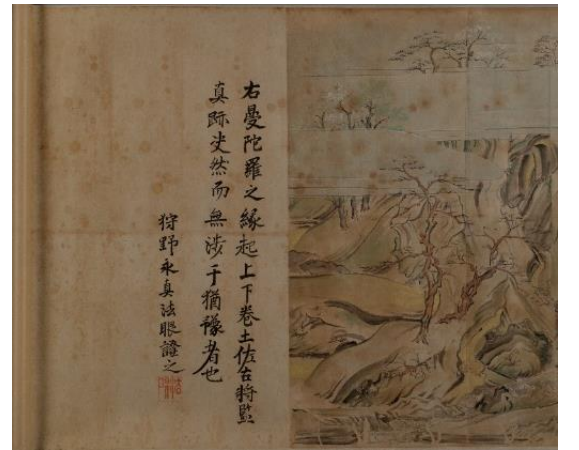 右曼陀羅之縁起上下巻土佐古将監
真跡灾然而無渉于猶豫者也
狩野永真法眼證之